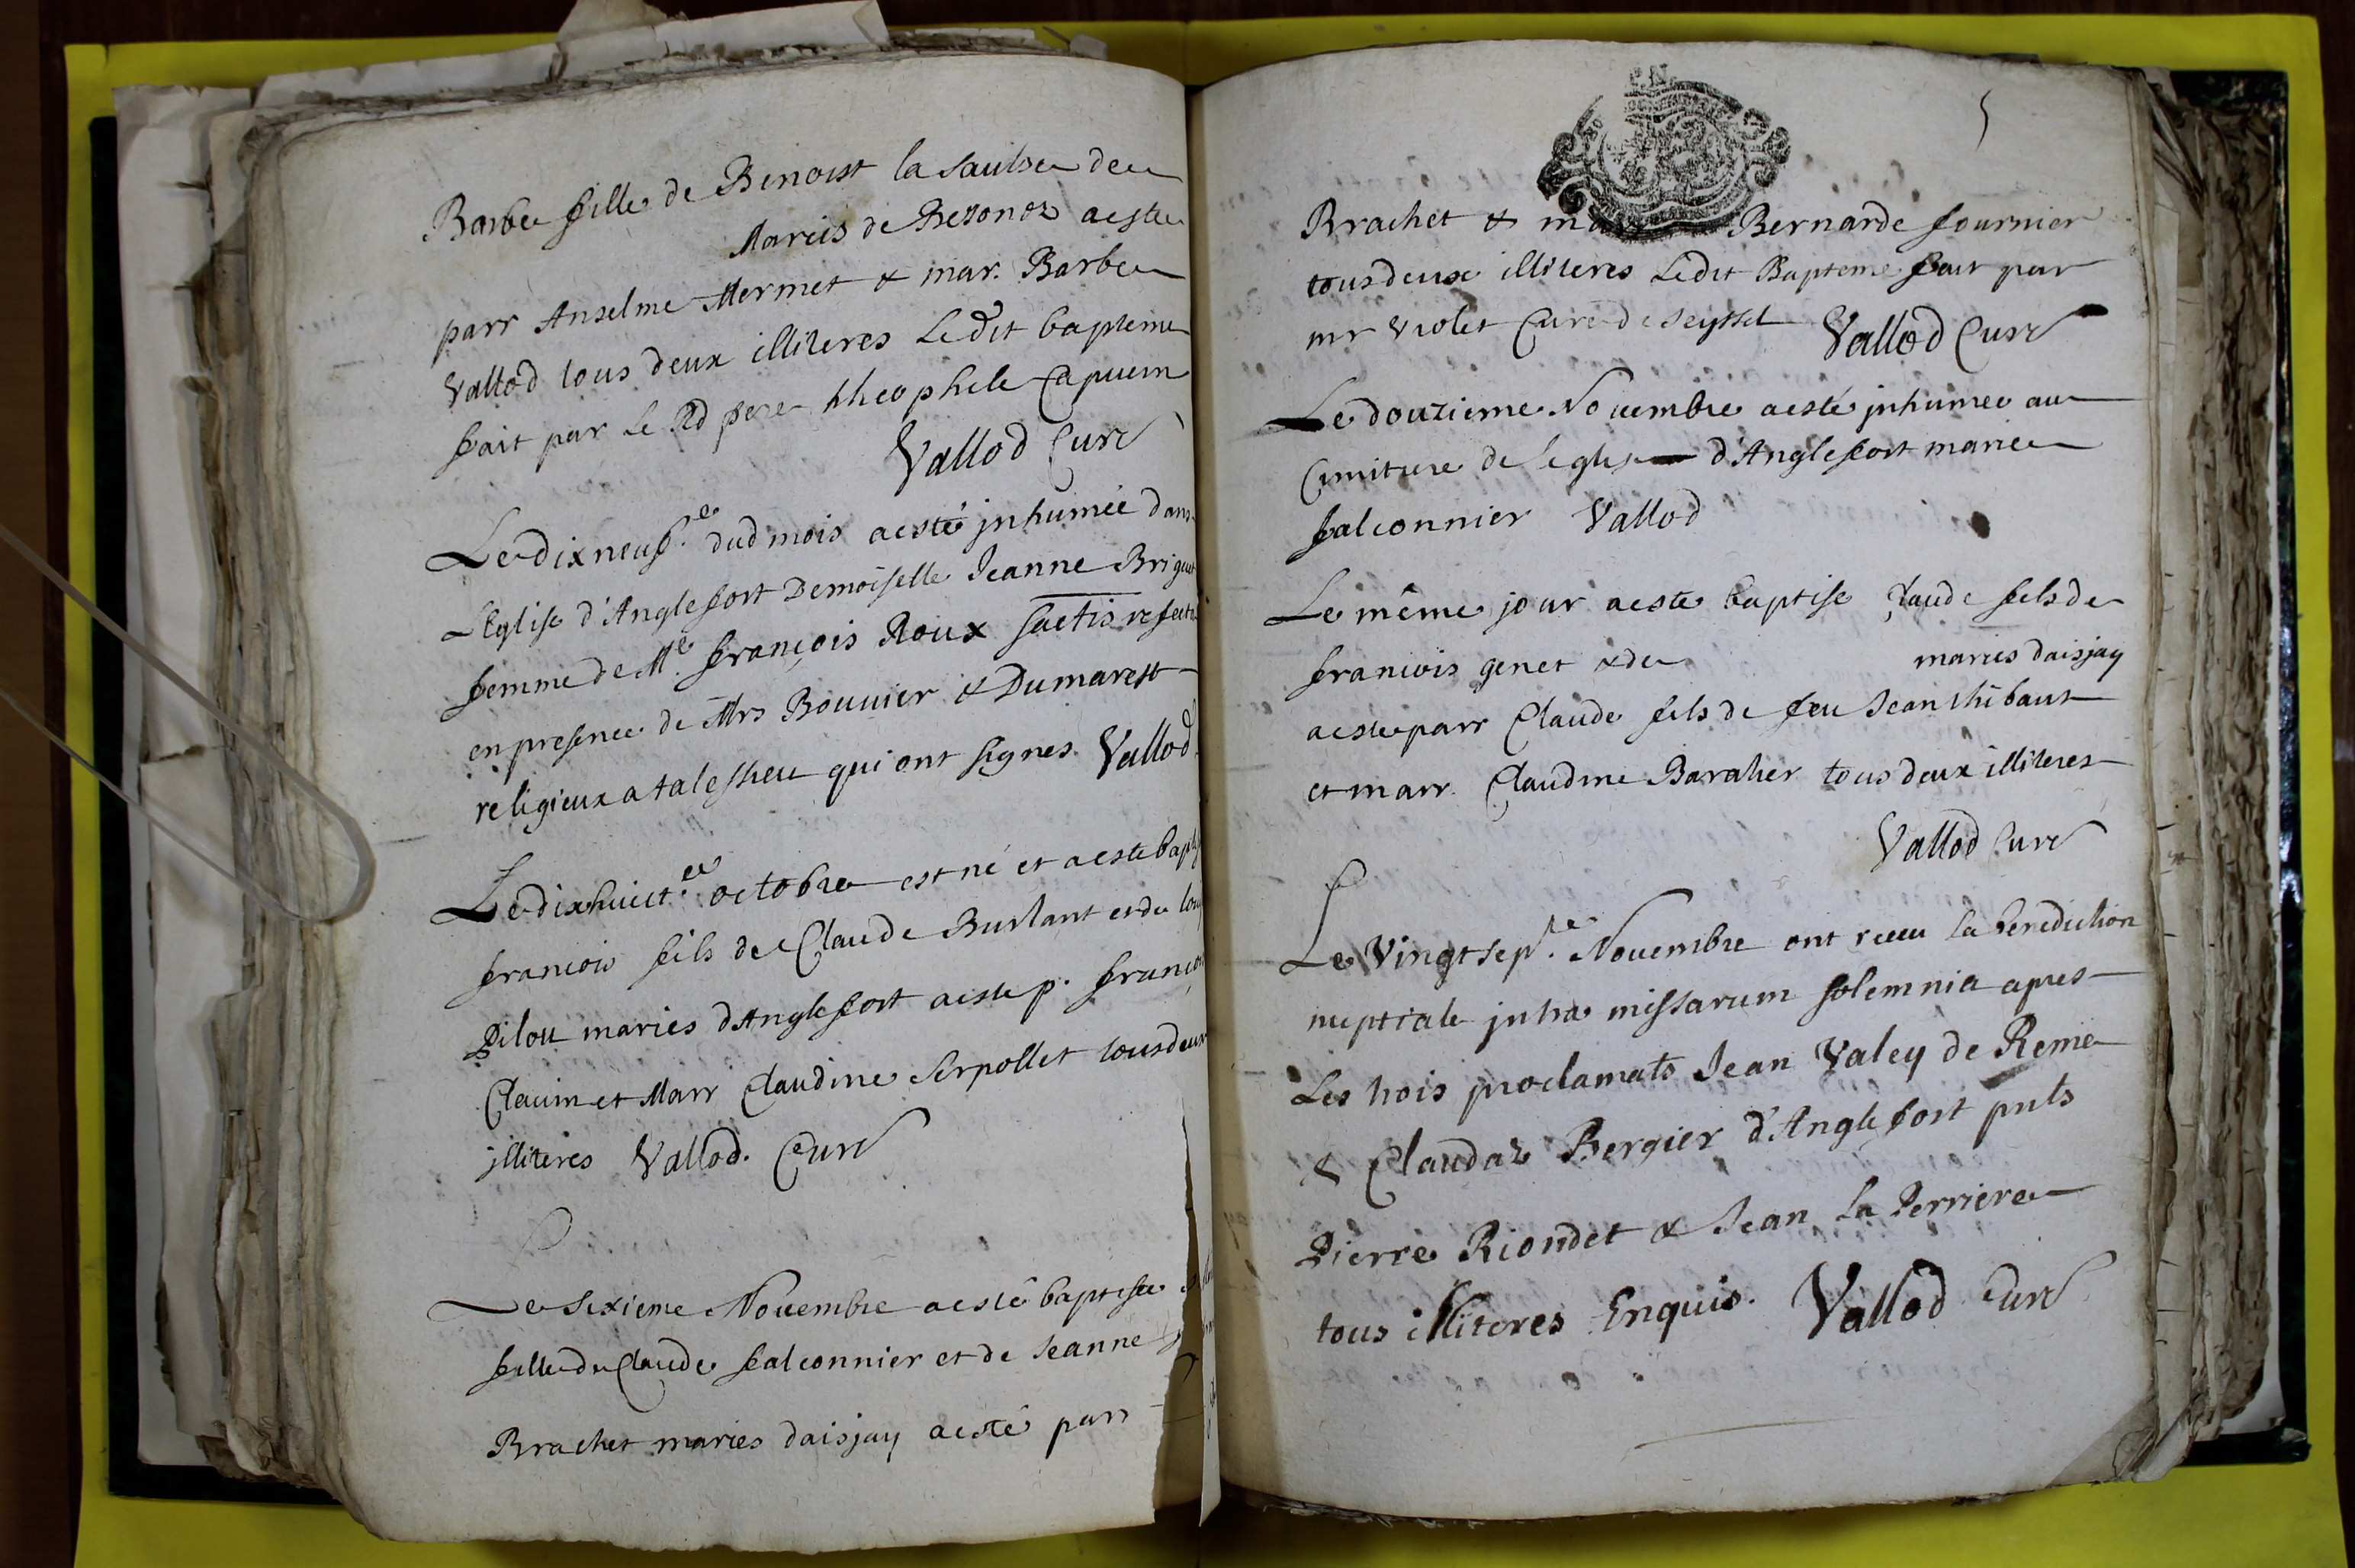 Barbe fille de Benoist la Saulse de
Mariés de Bezonoz a esté
parr Anselme Mermet & mar. Barbe
Vallod tous deux illiteres Ledit bapteme
fait par le Rd pere theophile Capucin
Vallod Curé
Le dix neuf.e dud mois a esté jnhumée dans
L'Eglise d'Anglefort Demoiselle Jeanne
femme de Me. françois Roux
en presence de Mrs Bouuier & Dumarest
religieux a talessieu qui ont signes Vallod.
Le dixhuict.e octobre est né et a esté
francois fils de Claude Burlant et de
Pilou mariés d'Anglefort a este p.
et Marr Claudine Serpollet tous deux
jlliteres Vallod. Curé
Le Sixieme Nouembre a esté baptisée
fille de Claude falconnier et de Jeanne
Brachet mariés daisjay a esté parr
5
Brachet & Bernarde fournier
tous deux illiteres Ledit Bapteme fait par
mr Violet Curé de Seyssel Vallod Curé
Le douzieme Nouembre a esté jnhumée au
Cimitiere de l'eglise d'Anglefort marie
falconnier Vallod
Le même jour a esté baptisé Claude fils de
francois genet & de mariés daisjay
a este parr Claude fils de feu Jean thibaut
et marr. Claudine tous deux illiteres
Vallod Curé
Le Vingt sep.e Nouembre ont receu la benediction
nuptiale jntra missarum solemnia apres
Les trois proclamats Jean Valey de Reme
& Claudaz Bergier d'Anglefort pnts
Pierre Riondet & Jean la Perriere
tous illiteres Enquis. Vallod Curé